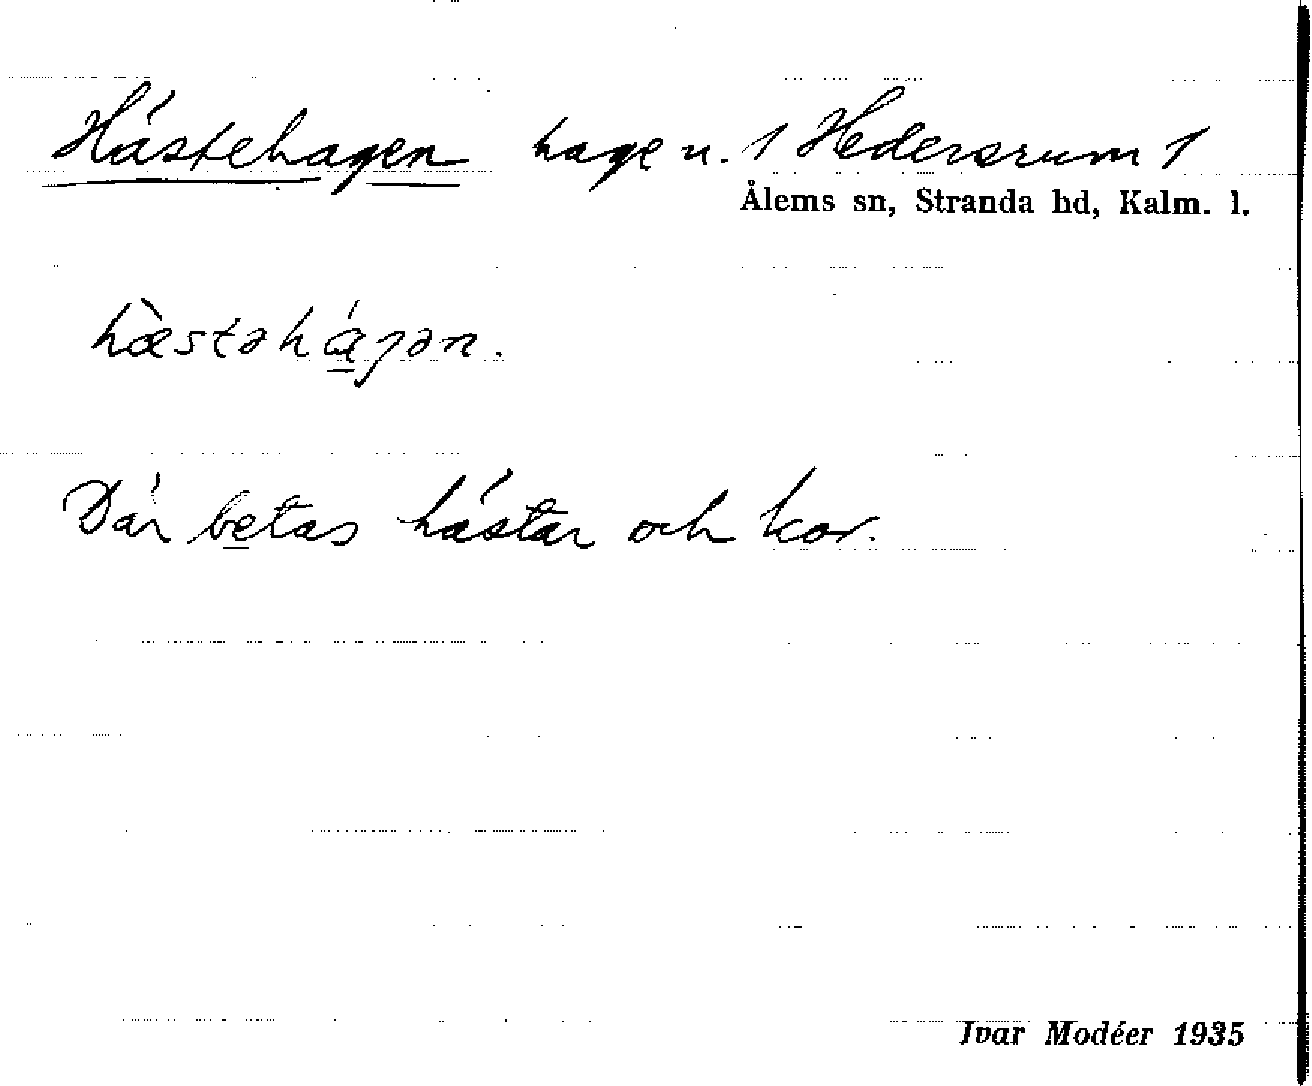 Hästehagen hage u. 1 Hedersrum 1
Ålems sn, Stranda hd, Kalm. l.
hæ̀stəhágən.
Där betas hästar och kor.
Ivar Modéer 1935